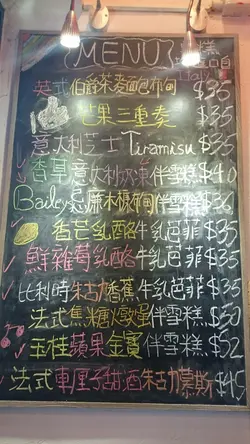 MENU
英式伯爵茶麥麵包布甸 $35
芒果三重奏 $35
意大利芝士Tiramisu $35
香草意大利奶凍伴雪糕 $40
Baileys 原木糠布甸伴雪糕 $36
香芒乳酪牛乳芭菲 $35
鮮雜莓乳酪牛乳芭菲 $35
比利時朱古力香蕉牛乳芭菲 $35
法式焦糖燉蛋伴雪糕 $50
玉桂蘋果金寶伴雪糕 $52
法式車厘子甜酒朱古力慕斯 $45